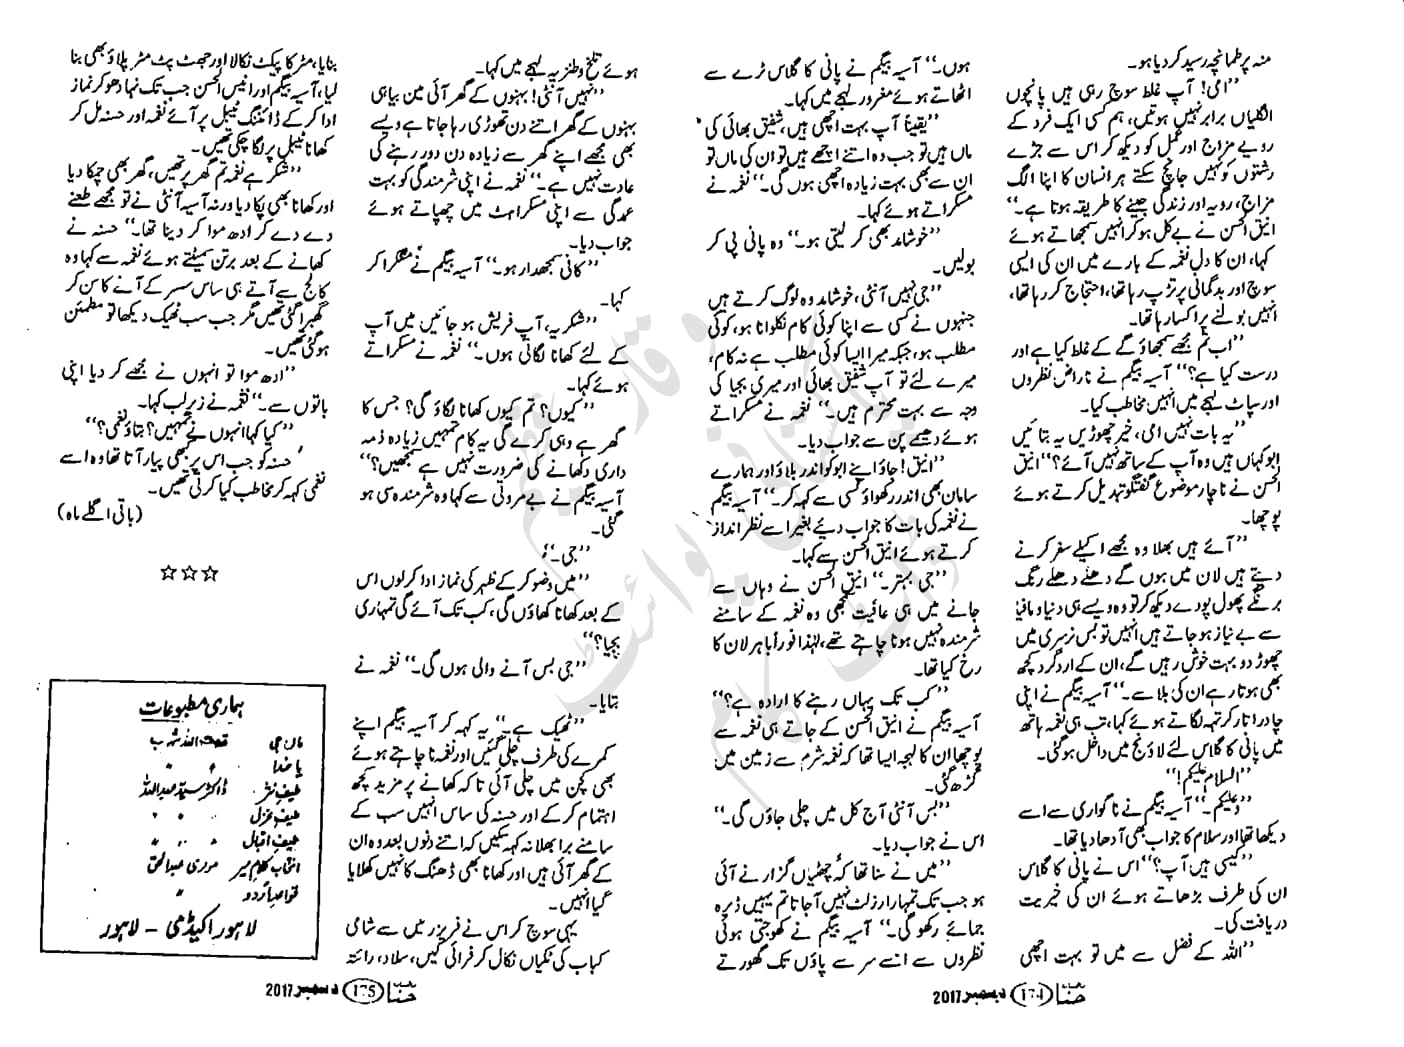 منہ پر طمانچہ رسید کر دیا ہو۔
”امی! آپ غلط سوچ رہی ہیں پانچوں
انگلیاں برابر نہیں ہوتیں، ہم کسی ایک فرد کے
رویے مزاج اور عمل کو دیکھ کر اس سے جڑے
رشتوں کو نہیں جانچ سکتے ہر انسان کا اپنا الگ
مزاج، رویہ اور زندگی جینے کا طریقہ ہوتا ہے۔“
انیق الحسن نے بے کل ہو کر انہیں سمجھاتے ہوئے
کہا، ان کا دل نغمہ کے بارے میں ان کی ایسی
سوچ اور بدگمانی پر تڑپ رہا تھا، احتجاج کر رہا تھا،
انہیں بولنے پر اکسا رہا تھا۔
”اب تم مجھے سمجھاؤ گے کے غلط کیا ہے اور
درست کیا ہے؟“ آسیہ بیگم نے ناراض نظروں
اور سپاٹ لہجے میں انہیں مخاطب کیا۔
”یہ بات نہیں امی، خیر چھوڑیں یہ بتائیں
ابو کہاں ہیں وہ آپ کے ساتھ نہیں آئے؟“ انیق
الحسن نے ناچار موضوع گفتگو تبدیل کرتے ہوئے
پوچھا۔
”آئے ہیں بھلا وہ مجھے اکیلے سفر کرنے
دیتے ہیں لان میں ہوں گے دھلے دھلے رنگ
برنگے پھول پودے دیکھ کر تو وہ ویسے ہی دنیا و مافیا
سے بے نیاز ہو جاتے ہیں انہیں تو بس نرسری میں
چھوڑ دو بہت خوش رہیں گے، ان کے ارد گرد کچھ
بھی ہوتا رہے ان کی بلا سے۔“ آسیہ بیگم نے اپنی
چادر اتار کر تہہ لگاتے ہوئے کہا، تب ہی نغمہ ہاتھ
میں پانی کا گلاس لئے لاؤنج میں داخل ہو گئی۔
”السلام علیکم!“
”وعلیکم۔“ آسیہ بیگم نے ناگواری سے اسے
دیکھا تھا اور سلام کا جواب بھی آدھا دیا تھا۔
”کیسی ہیں آپ؟“ اس نے پانی کا گلاس
ان کی طرف بڑھاتے ہوئے ان کی خیریت
دریافت کی۔
”اللہ کے فضل سے میں تو بہت اچھی
ہوں۔“ آسیہ بیگم نے پانی کا گلاس ٹرے سے
اٹھاتے ہوئے مغرور لہجے میں کہا۔
”یقیناً آپ بہت اچھی ہیں، شفیق بھائی کی
ماں ہیں تو جب وہ اتنے اچھے ہیں تو ان کی ماں تو
ان سے بھی بہت زیادہ اچھی ہوں گی۔“ نغمہ نے
مسکراتے ہوئے کہا۔
”خوشامد بھی کر لیتی ہو۔“ وہ پانی پی کر
بولیں۔
”جی نہیں آنٹی، خوشامد وہ لوگ کرتے ہیں
جنہوں نے کسی سے اپنا کوئی کام نکلوانا ہو، کوئی
مطلب ہو، جبکہ میرا ایسا کوئی مطلب ہے نہ کام،
میرے لئے تو آپ شفیق بھائی اور میری بجیا کی
وجہ سے بہت محترم ہیں۔“ نغمہ نے مسکراتے
ہوئے دھیمے پن سے جواب دیا۔
”انیق! جاؤ اپنے ابو کو اندر بلاؤ اور ہمارے
سامان بھی اندر رکھواؤ کسی سے کہہ کر۔“ آسیہ بیگم
نے نغمہ کی بات کا جواب دیئے بغیر اسے نظر انداز
کرتے ہوئے انیق الحسن سے کہا۔
”جی بہتر۔“ انیق الحسن نے وہاں سے
جانے میں ہی عافیت سمجھی وہ نغمہ کے سامنے
شرمندہ نہیں ہونا چاہتے تھے، لہٰذا فوراً باہر لان کا
رخ کیا تھا۔
”کب تک یہاں رہنے کا ارادہ ہے؟“
آسیہ بیگم نے انیق الحسن کے جاتے ہی نغمہ سے
پوچھا ان کا لہجہ ایسا تھا کہ نغمہ شرم سے زمین میں
گڑھ گئی۔
”بس آنٹی آج کل میں چلی جاؤں گی۔“
اس نے جواب دیا۔
”میں نے سنا تھا کہ چھٹیاں گزارنے آئی
ہو جب تک تمہارا رزلٹ نہیں آجاتا تم یہیں ڈیرہ
جمائے رکھو گی۔“ آسیہ بیگم نے کھوجتی ہوئی
نظروں سے اسے سر سے پاؤں تک گھورتے
حنا 174 دسمبر 2017
ہوئے تلخ و طنزیہ لہجے میں کہا۔
”نہیں آنٹی! بہنوں کے گھر آئی مین بیاہی
بہنوں کے گھر اتنے دن تھوڑی رہا جاتا ہے ویسے
بھی مجھے اپنے گھر سے زیادہ دن دور رہنے کی
عادت نہیں ہے۔“ نغمہ نے اپنی شرمندگی کو بہت
عمدگی سے اپنی مسکراہٹ میں چھپاتے ہوئے
جواب دیا۔
”کافی سمجھدار ہو۔“ آسیہ بیگم نے مسکرا کر
کہا۔
”شکریہ، آپ فریش ہو جائیں میں آپ
کے لئے کھانا لگاتی ہوں۔“ نغمہ نے مسکراتے
ہوئے کہا۔
”کیوں؟ تم کیوں کھانا لگاؤ گی؟ جس کا
گھر ہے وہی کرے گی یہ کام تمہیں زیادہ ذمہ
داری دکھانے کی ضرورت نہیں ہے سمجھیں؟“
آسیہ بیگم نے بے مروتی سے کہا وہ شرمندہ سی ہو
گئی۔
”جی۔“
”میں وضو کر کے ظہر کی نماز ادا کر لوں اس
کے بعد کھانا کھاؤں گی، کب تک آئے گی تمہاری
بجیا؟“
”جی بس آنے والی ہوں گی۔“ نغمہ نے
بتایا۔
”ٹھیک ہے۔“ یہ کہہ کر آسیہ بیگم اپنے
کمرے کی طرف چلی گئیں اور نغمہ نا چاہتے ہوئے
بھی کچن میں چلی آئی تاکہ کھانے پر مزید کچھ
اہتمام کرے اور حسنہ کی ساس انہیں سب کے
سامنے برا بھلا نہ کہہ سکیں کہ اتنے دنوں بعد وہ ان
کے گھر آئی ہیں اور کھانا بھی ڈھنگ کا نہیں کھلایا
گیا انہیں۔
یہی سوچ کر اس نے فریزر میں سے شامی
کباب کی ٹکیاں نکال کر فرائی کیں، سلاد، رائتہ
بنایا، مٹر کا پیکٹ نکالا اور جھٹ پٹ مٹر پلاؤ بھی بنا
لیا، آسیہ بیگم اور انیس الحسن جب تک نہا دھو کر نماز
ادا کر کے ڈائننگ ٹیبل پر آئے نغمہ اور حسنہ مل کر
کھانا ٹیبل پر لگا چکی تھیں۔
”شکر ہے نغمہ تم گھر پر تھیں، گھر بھی چمکا دیا
اور کھانا بھی پکا دیا ورنہ آسیہ آنٹی نے تو مجھے طعنے
دے دے کر ادھ موا کر دینا تھا۔“ حسنہ نے
کھانے کے بعد برتن سمیٹتے ہوئے نغمہ سے کہا وہ
کالج سے آتے ہی ساس سسر کے آنے کا سن کر
گھبرا گئی تھیں مگر جب سب ٹھیک دیکھا تو مطمئن
ہو گئی تھیں۔
”ادھ موا تو انہوں نے مجھے کر دیا اپنی
باتوں سے۔“ نغمہ نے زیر لب کہا۔
”کیا کہا انہوں نے تمہیں؟ بتاؤ نغمی؟“
حسنہ کو جب اس پر کبھی پیار آتا تھا وہ اسے
نغمی کہہ کر مخاطب کیا کرتی تھیں۔
(باقی اگلے ماہ)
☆☆☆
ہماری مطبوعات
ماں جی قدرت اللہ شہاب
یا خدا ״ ״
طیف نثر ڈاکٹر سید عبداللہ
طیف غزل ״ ״ ״
طیف اقبال ״ ״ ״
انتخاب کلام میر مولوی عبدالحق
قواعد اردو ״
لاہور اکیڈمی - لاہور
حنا 175 دسمبر 2017